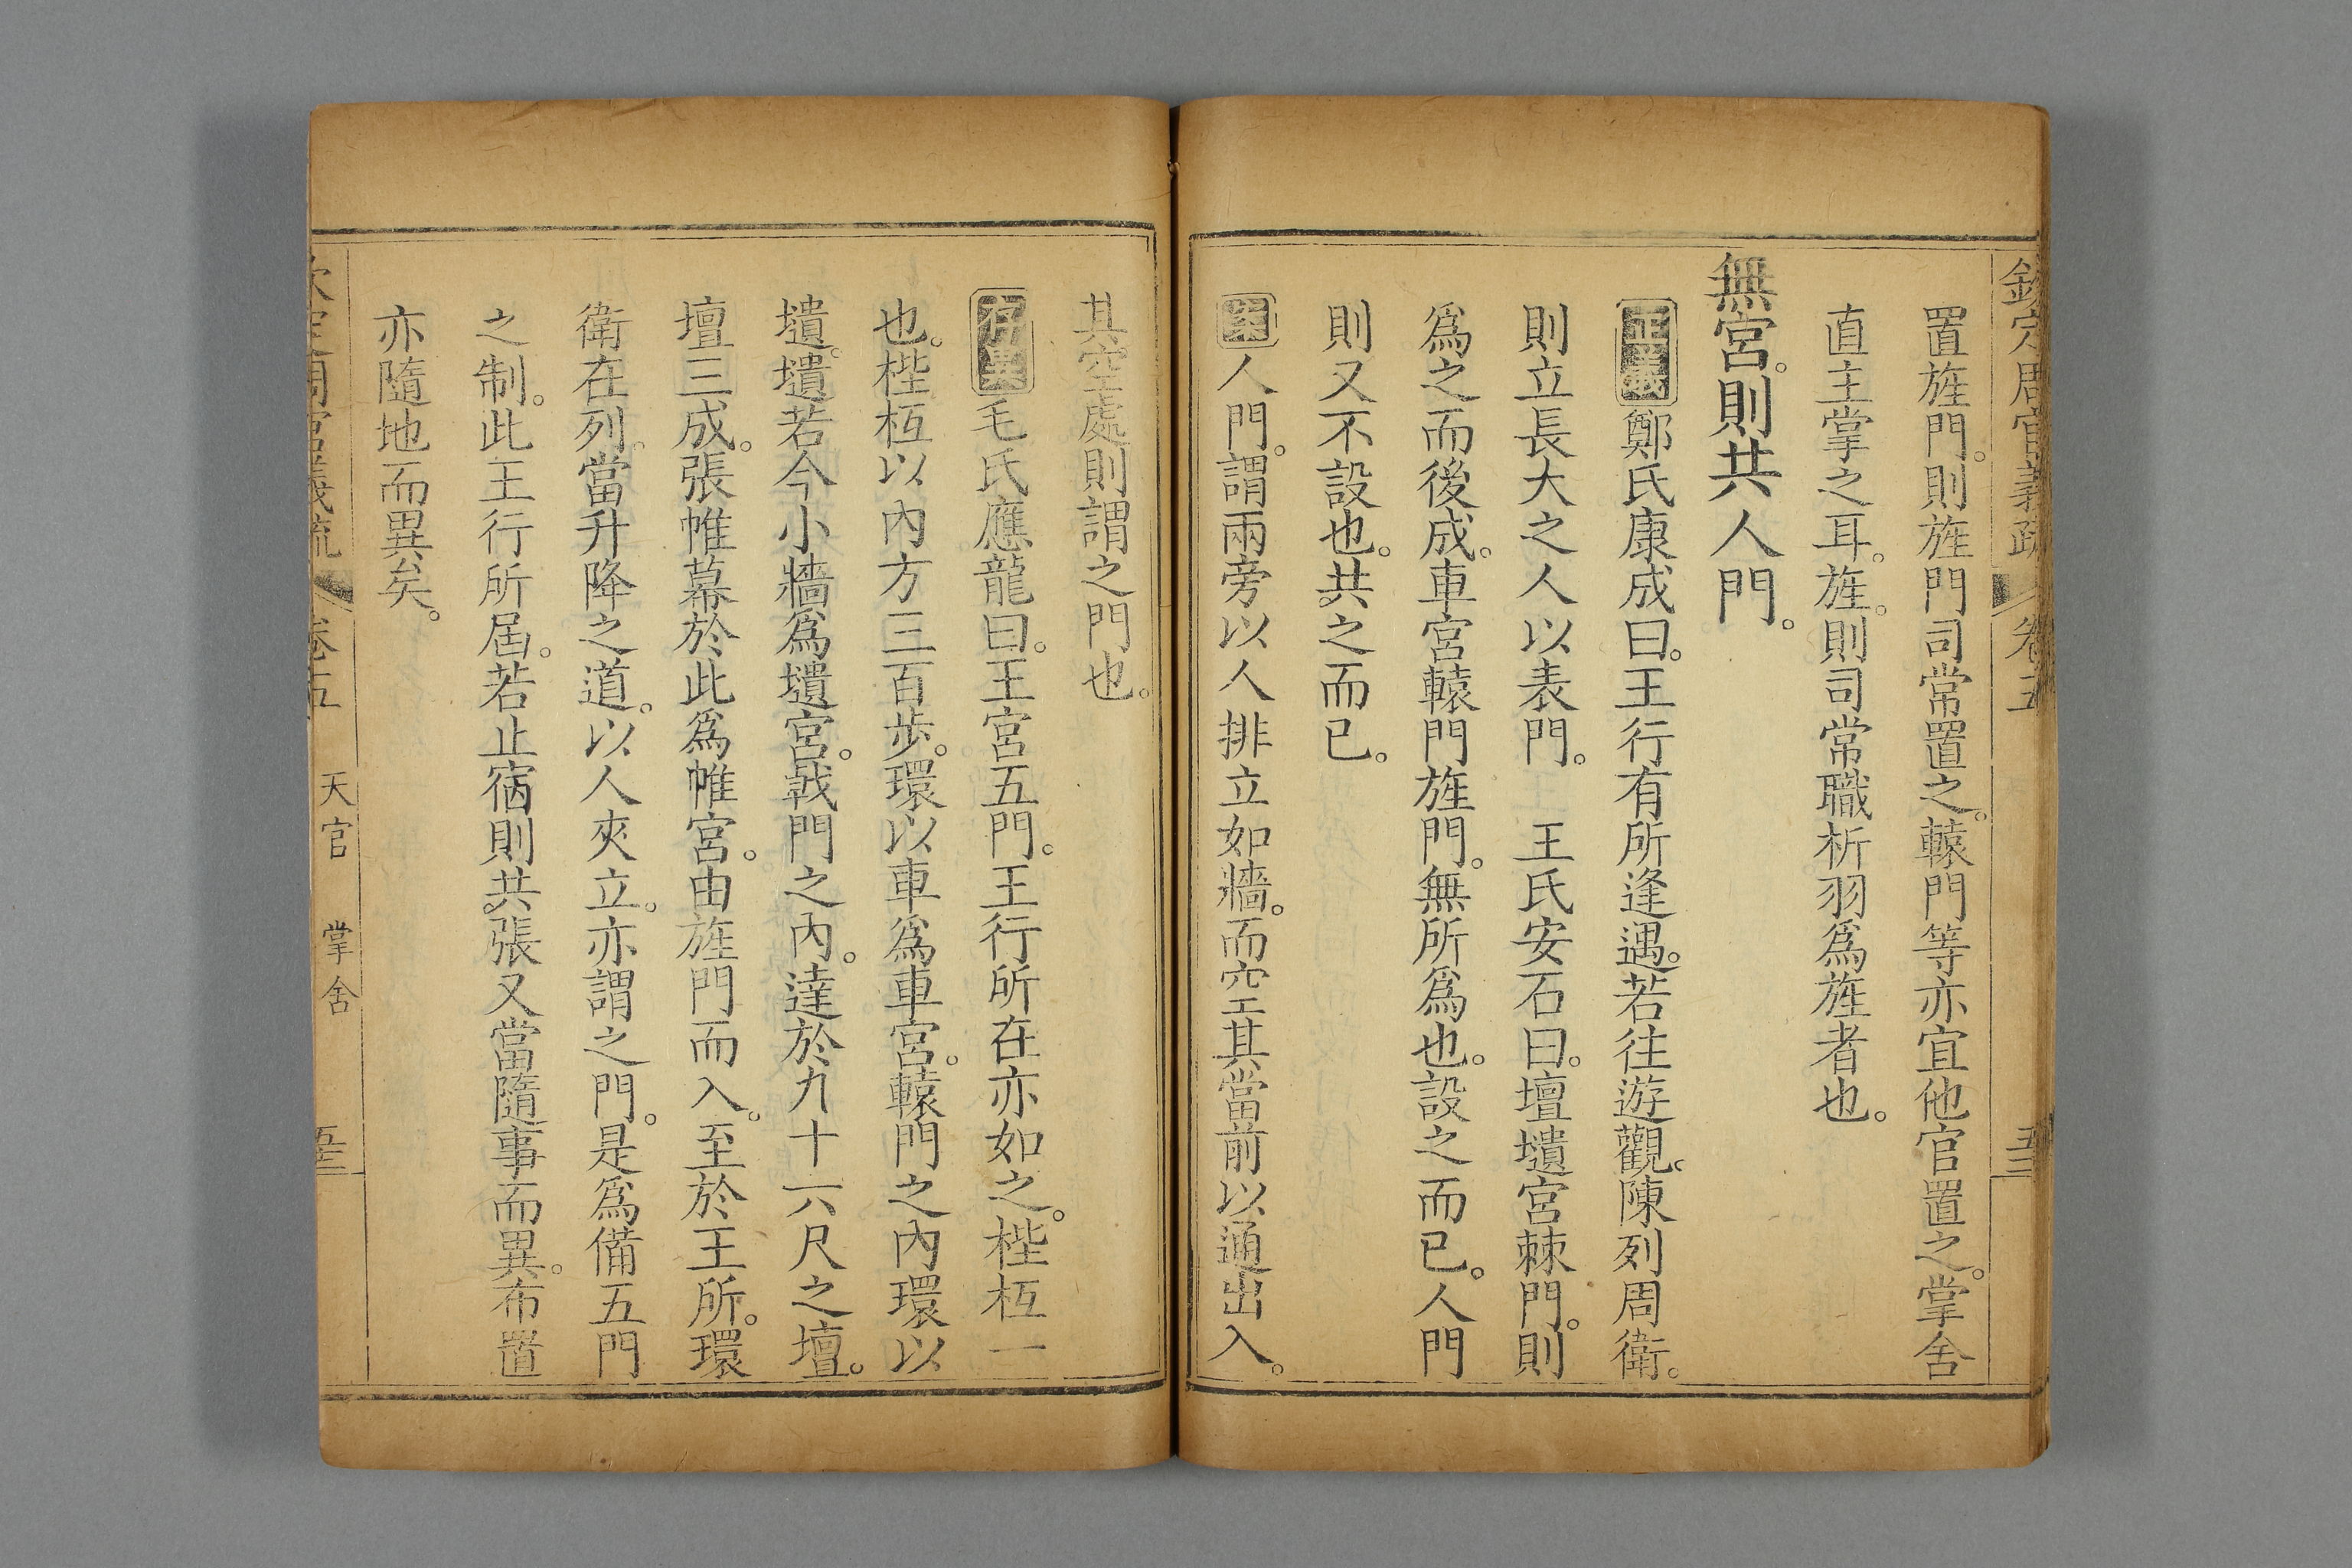 欽定周官義疏 卷五 五二
置旌門。則旌門司常置之。轅門等亦宜他官置之。掌舍
直主掌之耳。旌。則司常職析羽爲旌者也。
無宮。則共人門。
正義 鄭氏康成曰。王行有所逢遇。若往遊觀。陳列周衛。
則立長大之人以表門。 王氏安石曰。壇壝宮棘門。則
爲之而後成。車宮轅門旌門。無所爲也。設之而已。人門
則又不設也。共之而已。
案 人門。謂兩旁以人排立如牆。而空其當前以通出入。
其空處則謂之門也。
存異 毛氏應龍曰。王宮五門。王行所在亦如之。梐枑一
也。梐枑以內方三百步。環以車爲車宮。轅門之內環以
壝。壝若今小牆爲壝宮。戟門之內。達於九十六尺之壇。
壇三成。張帷幕於此爲帷宮。由旌門而入。至於王所。環
衛在列。當升降之道。以人夾立。亦謂之門。是爲備五門
之制。此王行所屆。若止宿則共。張又當隨事而異。布置
亦隨地而異矣。
欽定周官義疏 卷五 天官 掌舍 五三